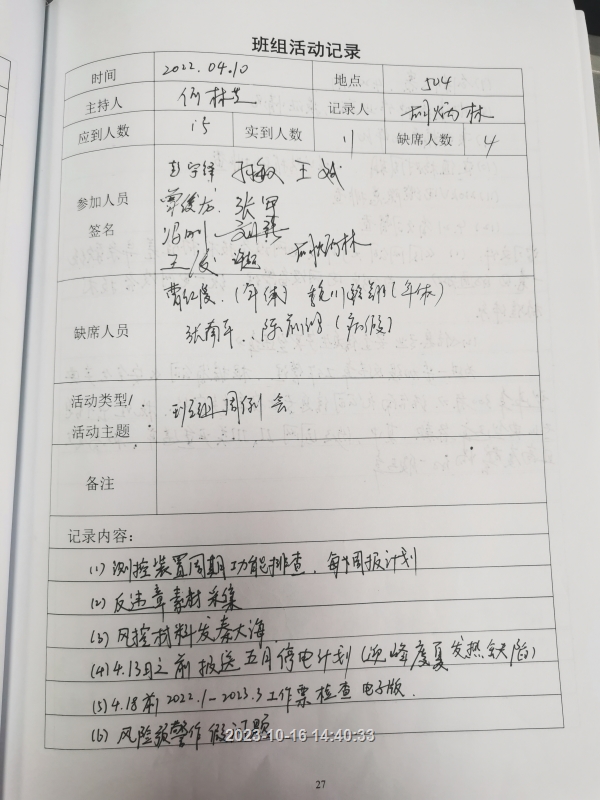 班组活动记录
时间 2022.04.10 地点 504
主持人 何林 记录人 胡炳林
应到人数 15 实到人数 11 缺席人数 4
参加人员
签名
彭宇锋 孙敏 王斌
张军
胡炳林
缺席人员
(年休) (年休)
(病假)
活动类型/
活动主题
班组周例会
备注
记录内容:
(1) 测控装置周期功能排查,每周报计划
(2) 反违章素材采集
(3) 风控材料发秦大海
(4) 4.13日之前报送五月停电计划(迎峰度夏发热缺陷)
(5) 4.18前2022.1-2023.3工作票检查电子版.
(6) 风险预警作假问题
2023-10-16 14:40:33
27